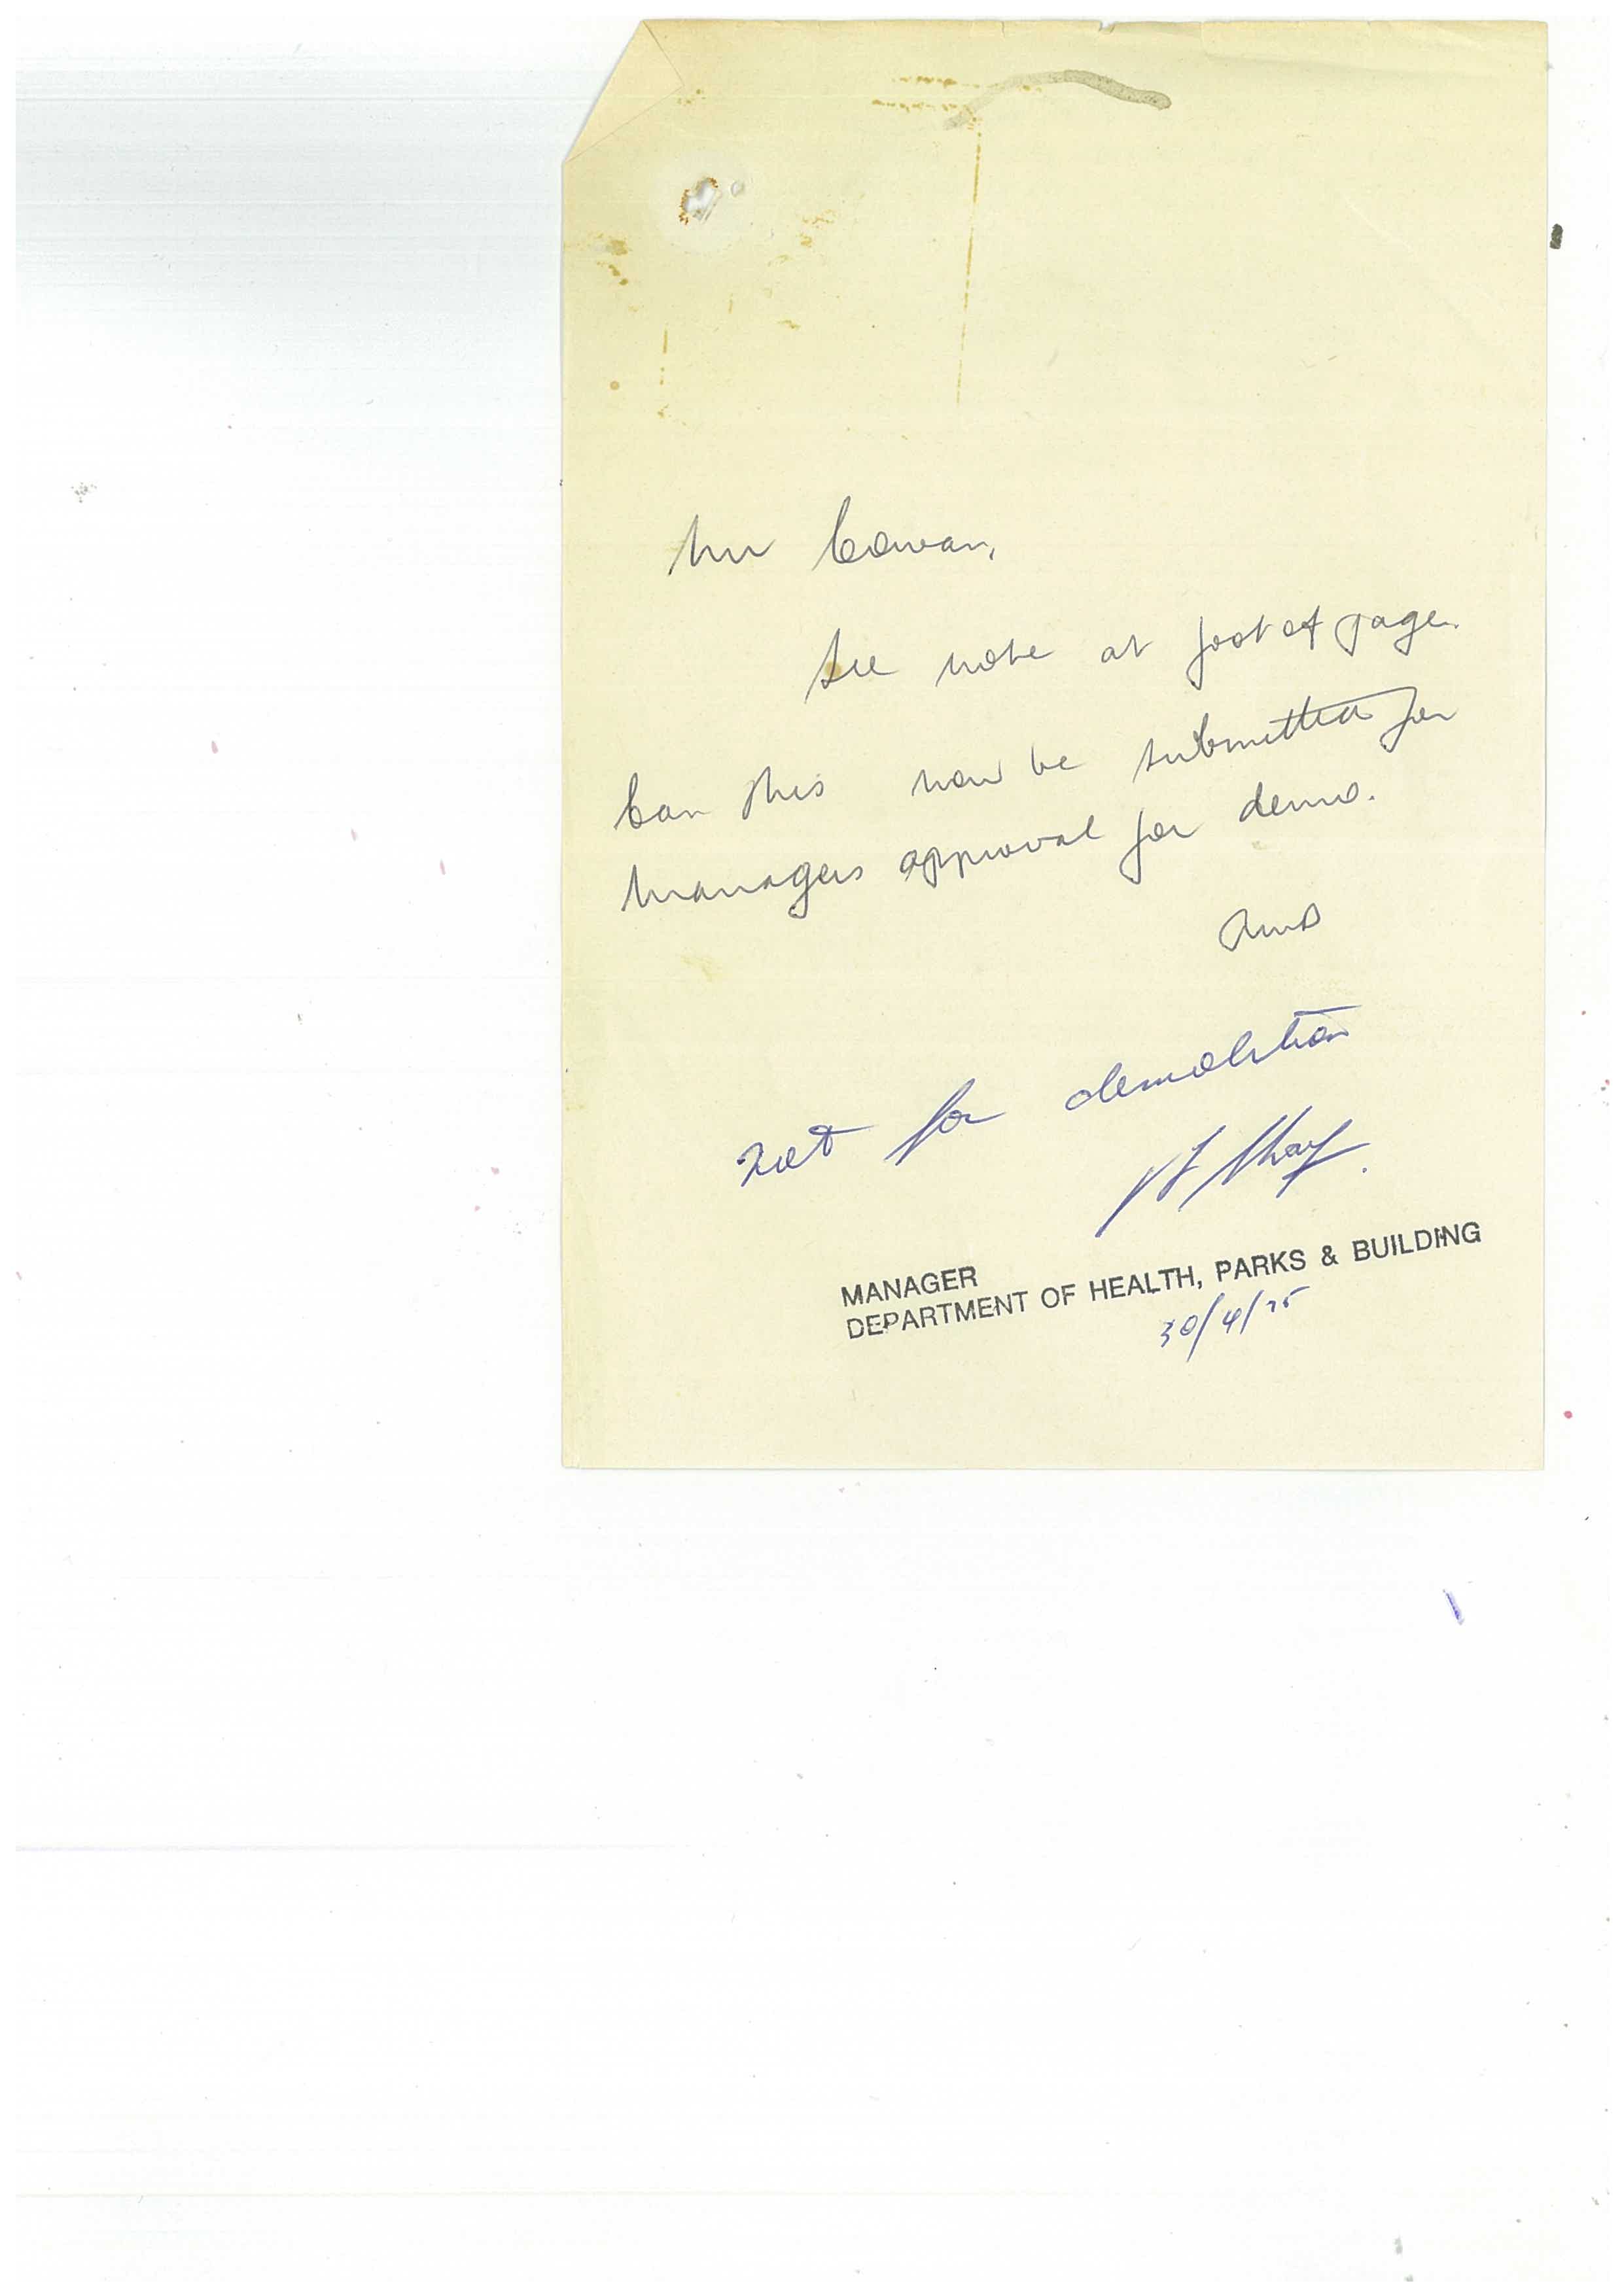 Mr Cowan,
See note at foot of page.
Can this now be submitted for
managers approval for demo.
not for demolition
MANAGER
DEPARTMENT OF HEALTH, PARKS & BUILDING
30/4/75